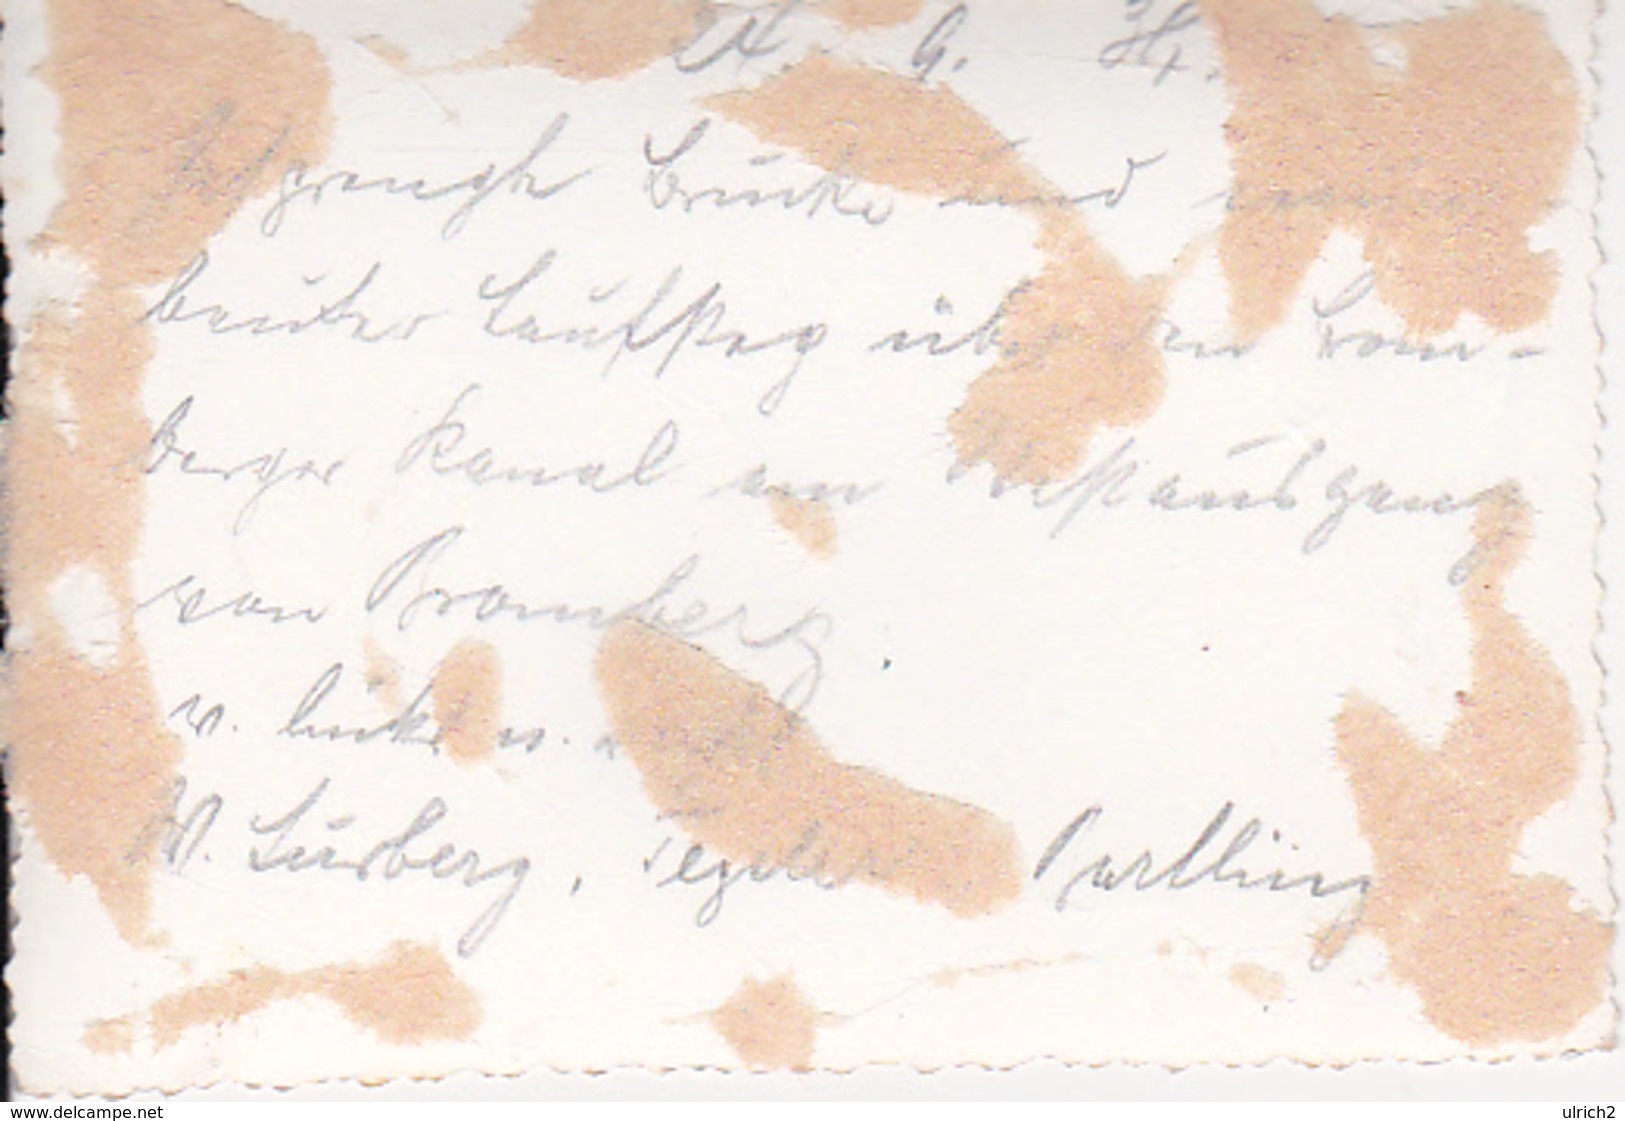 9. 
gesprengte Brücke und
bauter Laufsteg über den Brom-
berger Kanal am Westausgang
von Bromberg.
v. links n. 
W. Lürberg, Tegeler Partling
www.delcampe.net
ulrich2